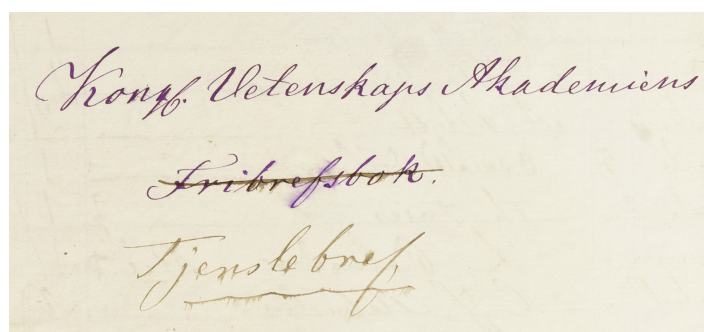 Kongl. Vetenskaps Akademiens
Fribrefsbok.
Tjenstebref,